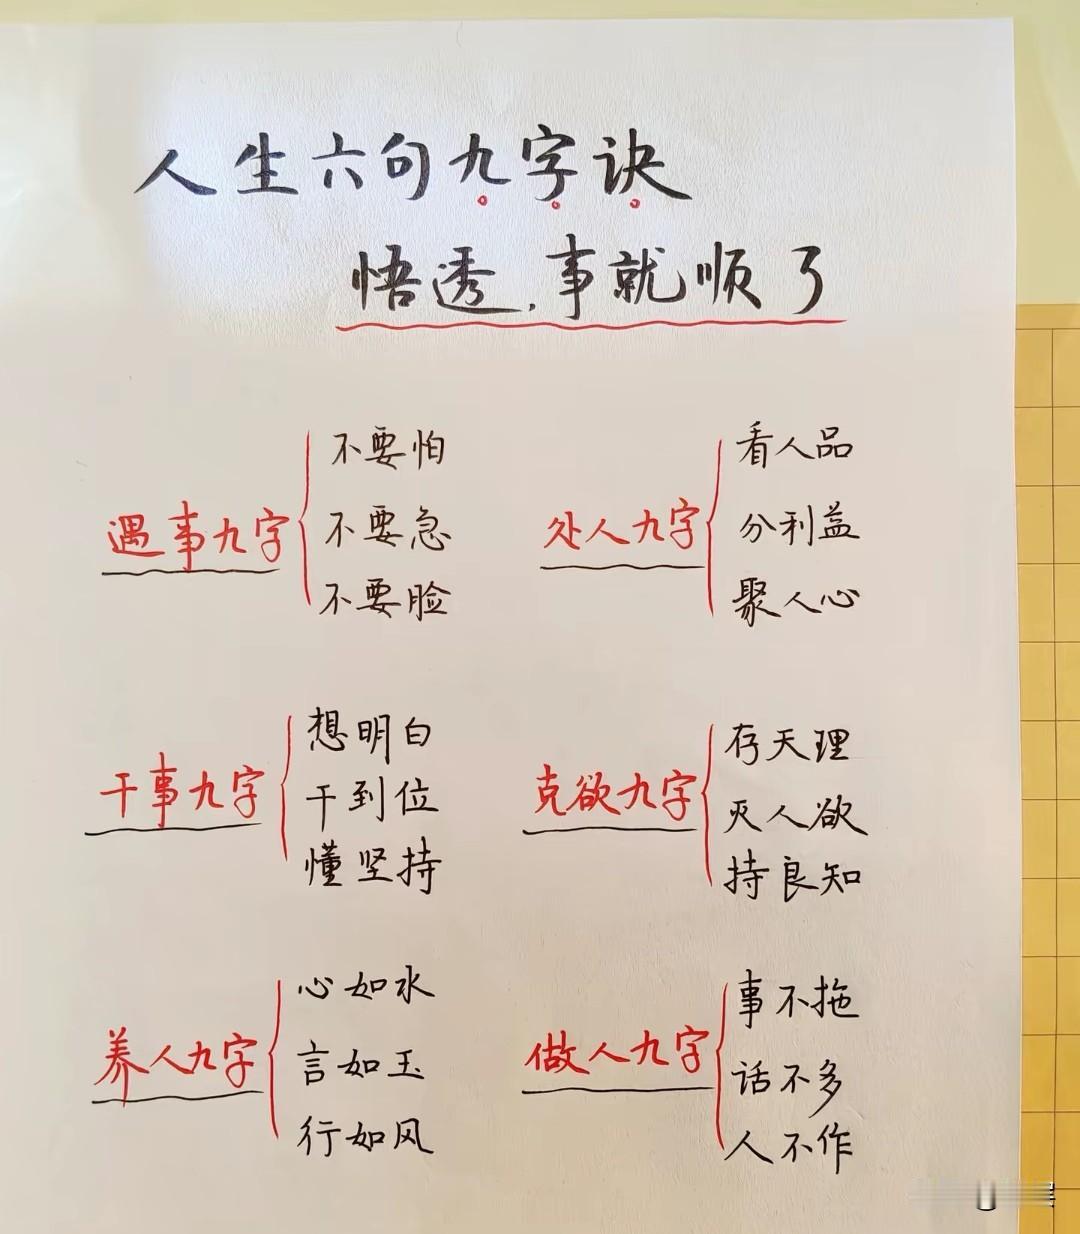 人生六句九字诀
悟透，事就顺了
遇事九字
不要怕
不要急
不要脸
处人九字
看人品
分利益
聚人心
干事九字
想明白
干到位
懂坚持
克欲九字
存天理
灭人欲
持良知
养人九字
心如水
言如玉
行如风
做人九字
事不拖
话不多
人不作